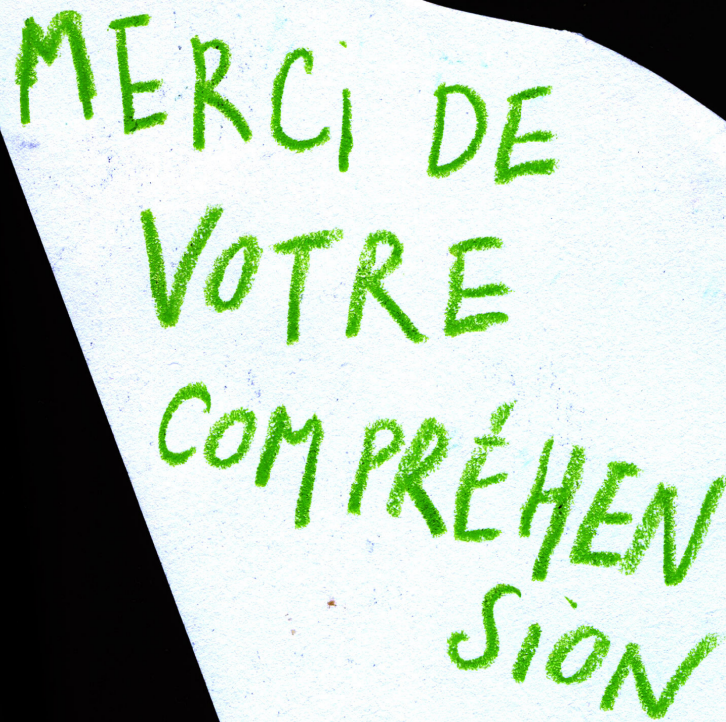 MERCi DE
VOTRE
COMPRÉHEN
SiON